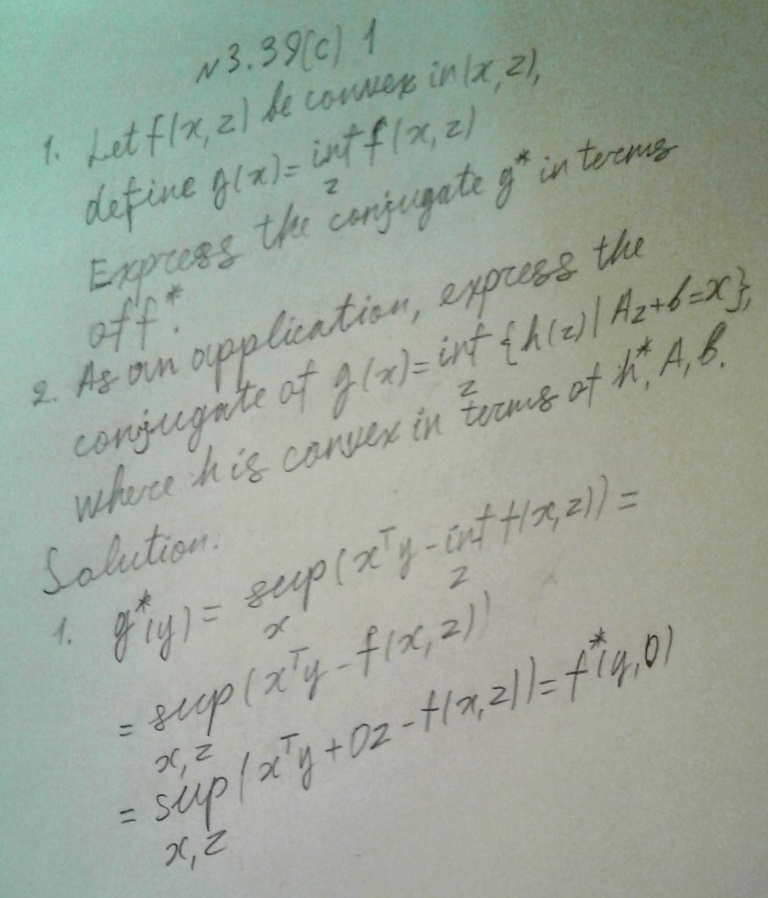 N 3.39(c) 1
1. Let f(x, z) be convex in (x, z),
define g(x) = inf f(x, z)
z
Express the conjugate g* in terms
of f*
2. As an application, express the
conjugate of g(x) = inf {h(z) | Az + b = x},
z
where h is convex in terms of h*, A, b.
Solution:
1. g*(y) = sup (xᵀy - inf f(x, z)) =
x z
= sup (xᵀy - f(x, z))
x, z
= sup (xᵀy + 0z - f(x, z)) = f*(y, 0)
x, z